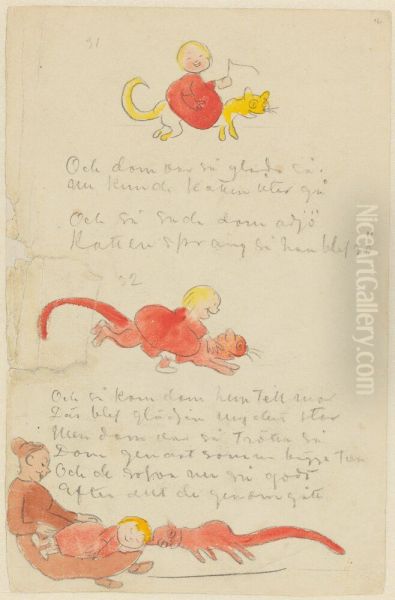 31
Och dom var så glada så.
nu kunde katten åter gå
Och så sade dom adjö
Katten sprang så han blef
32
Och så kom dom hem till mor
Där blef glädjen mycket stor
Men dom var så trötta så
Dom genast somna bägge två
Och de sofva nu så godt
Efter allt de genomgått
NiceArtGallery.com